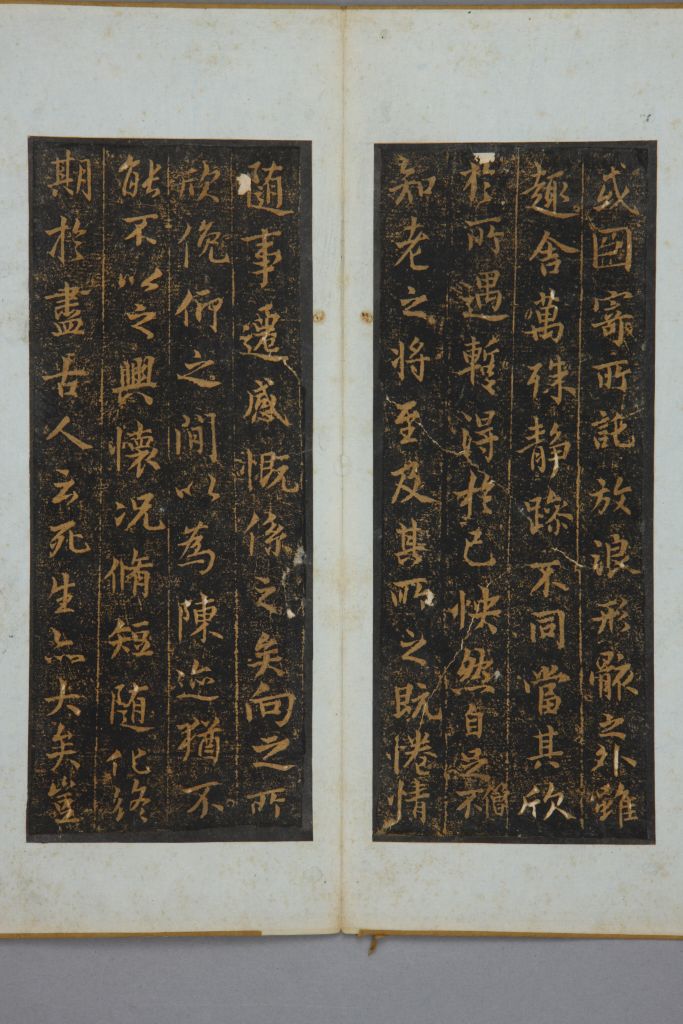 或因寄所託放浪形骸之外雖
趣舍萬殊静躁不同當其欣
於所遇暫得於己怏然自足不
僧
知老之将至及其所之既惓情
隨事遷感慨係之矣向之所
欣俛仰之間以為陳迹猶不
能不以之興懷况脩短隨化終
期於盡古人云死生亦大矣豈